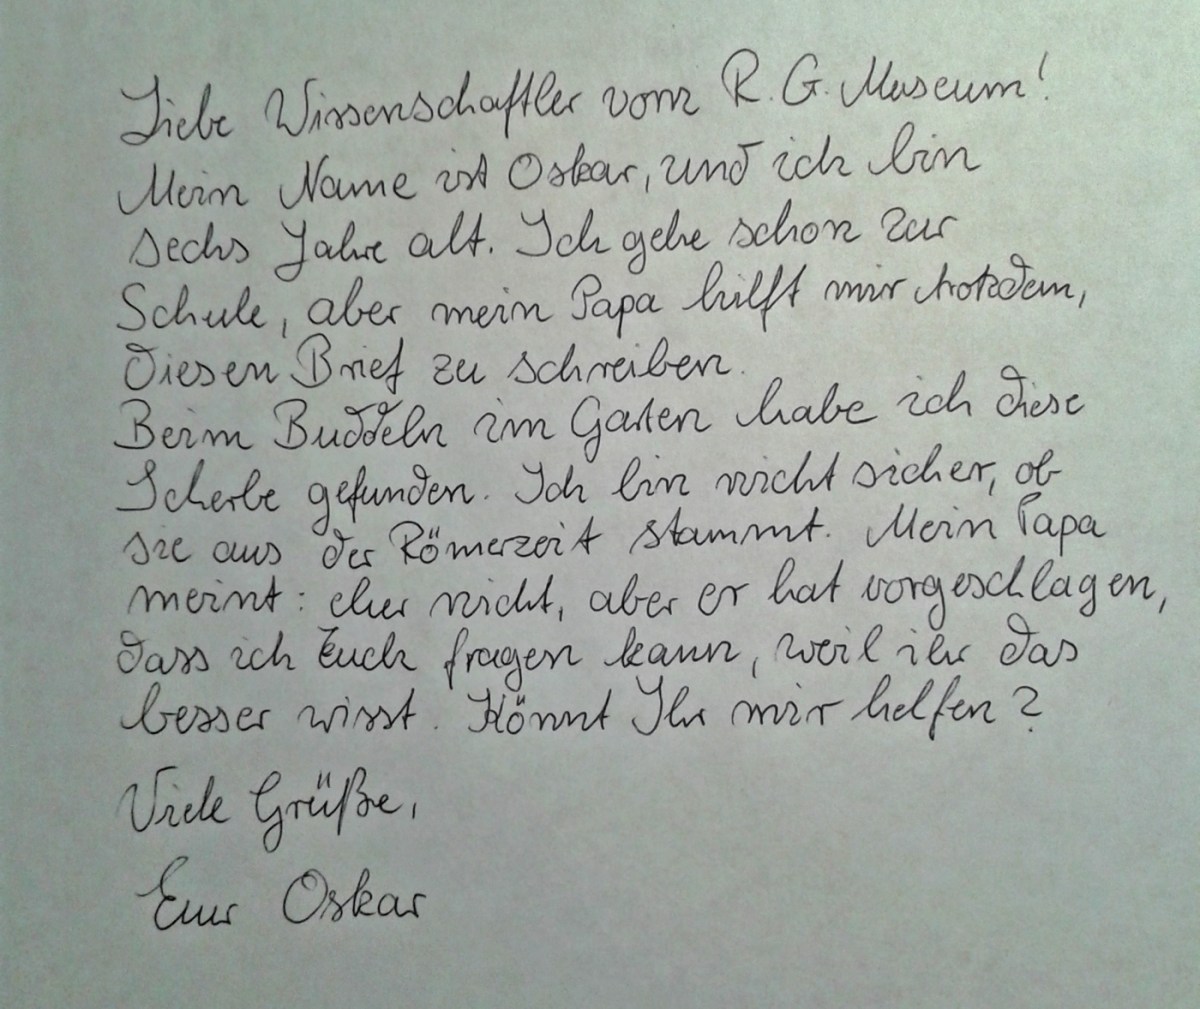 Liebe Wissenschaftler vom R. G. Museum!
Mein Name ist Oskar, und ich bin
sechs Jahre alt. Ich gehe schon zur
Schule, aber mein Papa hilft mir trotzdem,
diesen Brief zu schreiben.
Beim Buddeln im Garten habe ich diese
Scherbe gefunden. Ich bin nicht sicher, ob
sie aus der Römerzeit stammt. Mein Papa
meint: eher nicht, aber er hat vorgeschlagen,
dass ich Euch fragen kann, weil ihr das
besser wisst. Könnt Ihr mir helfen?
Viele Grüße,
Euer Oskar